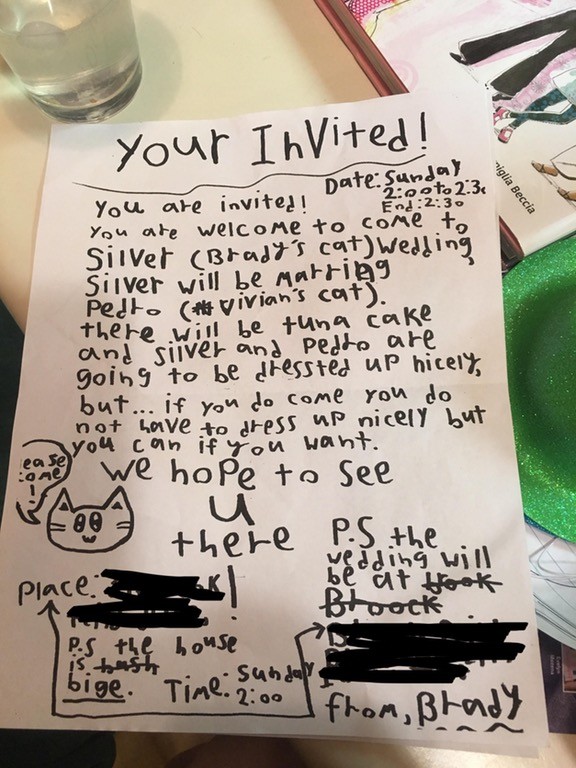 Your Invited!
Date: Sunday
2:00 to 2:30
End: 2:30
You are invited!
You are welcome to come to
Silver (Brady's cat) Wedding,
Silver will be Marring
Pedro (Vivian's cat).
there will be tuna cake
and silver and Pedro are
going to be dressted up nicely,
but... if you do come you do
not have to dress up nicely but
you can if you want.
We hope to see
u
there
ease
ome!
P.S the
wedding will
be at
Place: !
P.S the house
is
bige.
Time: Sunday
2:00
from, Brady
miglia Beccia